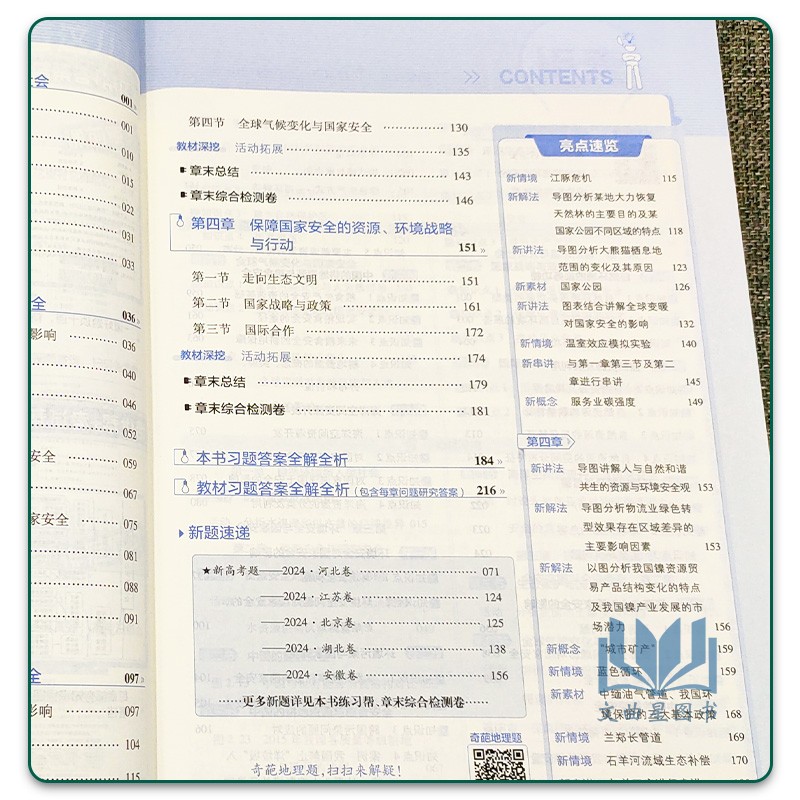 CONTENTS
会
001
001
010
015
022
031
033
全
036
影响 036
040
046
052
安全 059
067
家安全 075
081
088
091
全 097
影响 097
104
115
第四节 全球气候变化与国家安全 130
教材深挖 活动拓展 135
章末总结 143
章末综合检测卷 146
第四章 保障国家安全的资源、环境战略
与行动 151
第一节 走向生态文明 151
第二节 国家战略与政策 161
第三节 国际合作 172
教材深挖 活动拓展 174
章末总结 179
章末综合检测卷 181
本书习题答案全解全析 184
教材习题答案全解全析(包含每章问题研究答案) 216
新题速递
★新高考题——2024·河北卷 071
——2024·江苏卷 124
——2024·北京卷 125
——2024·湖北卷 138
——2024·安徽卷 156
······更多新题详见本书练习帮、章末综合检测卷······
奇葩地理题
奇葩地理题,扫扫来解疑!
亮点速览
新情境 江豚危机 115
新解法 导图分析某地大力恢复
天然林的主要目的及某
国家公园不同区域的特点 118
新讲法 导图分析大熊猫栖息地
范围的变化及其原因 123
新素材 国家公园 126
新讲法 图表结合讲解全球变暖
对国家安全的影响 132
新情境 温室效应模拟实验 140
新串讲 与第一章第三节及第二
章进行串讲 145
新概念 服务业碳强度 149
第四章
新讲法 导图讲解人与自然和谐
共生的资源与环境安全观 153
新解法 导图分析物流业绿色转
型效果存在区域差异的
主要影响因素 153
新解法 以图分析我国镍资源贸
易产品结构变化的特点
及我国镍产业发展的市
场潜力 156
新概念 “城市矿产” 159
新情境 蓝色循环 159
新素材 中缅油气管道、我国环
境保护的三大基本政策 168
新情境 兰郑长管道 169
新情境 石羊河流域生态补偿 170
文曲星图书